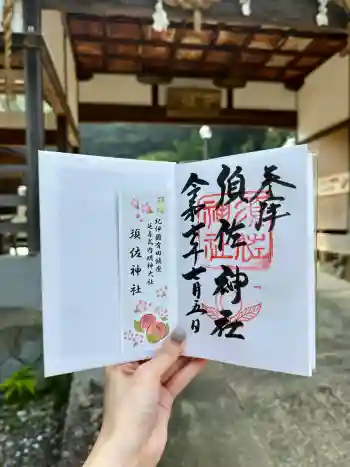 奉拝
須佐神社
令和年七月五日
須佐神社
紀伊國有田鎮座
延喜式内明神大社
須佐神社